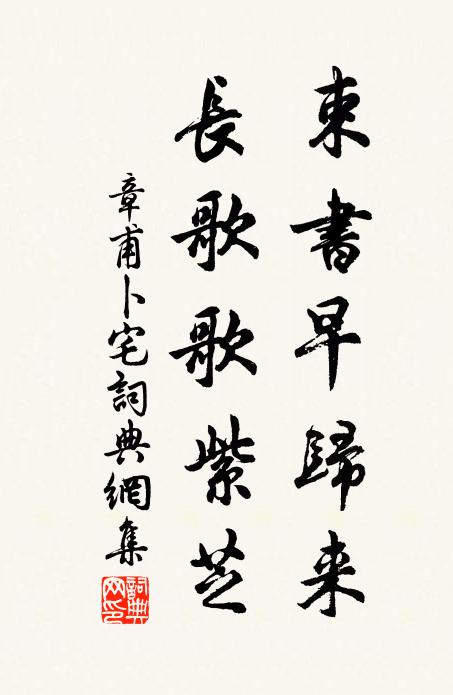 束書早歸来
長歌歌紫芝
章甫卜宅詞典網集
詞典
网印